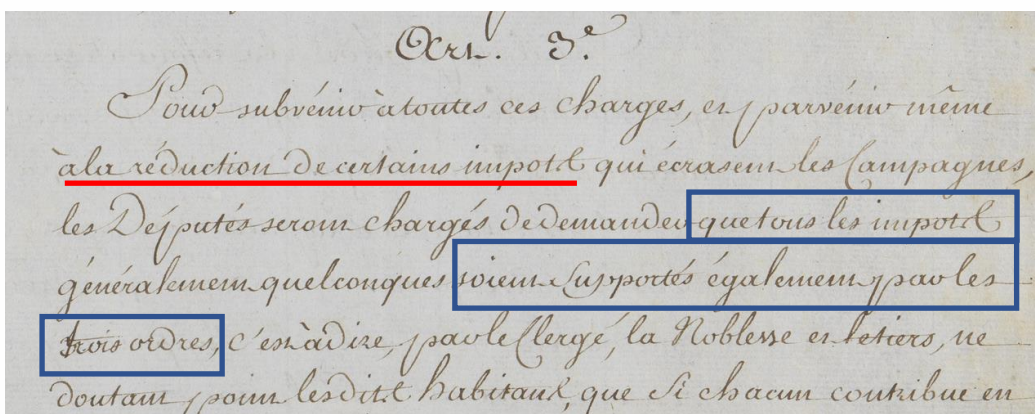 Art. 3.e
Pour subvénir à toutes ces charges, et parvénir même
à la réduction de certains impots qui écrasent les Campagnes,
les Députés seront chargés de demander que tous les impots
généralement quelconques soient supportés également par les
trois ordres, c'est à dire, par le Clergé, la Noblesse et le tiers, ne
doutant point lesdits habitans, que si chacun contribue en